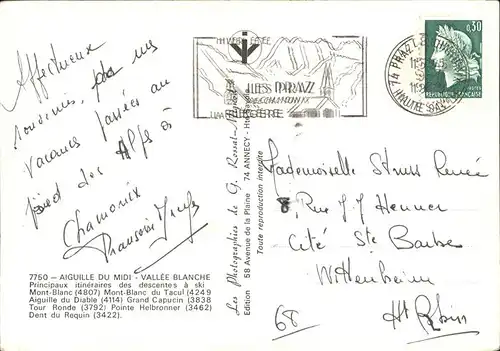 Affectueux
souvenirs, de nos
vacances passées au
pied des Alpes à
Chamonix
7750 — AIGUILLE DU MIDI - VALLÉE BLANCHE
Principaux itinéraires des descentes à ski
Mont-Blanc (4807) Mont-Blanc du Tacul (4249
Aiguille du Diable (4114) Grand Capucin (3838
Tour Ronde (3792) Pointe Helbronner (3462)
Dent du Requin (3422).
Les Photographies de G. Rossat-Mignod
Edition 58 Avenue de la Plaine 74 ANNECY - Hte
Toute reproduction interdite
LES PRAZ
0,30
POSTES
REPUBLIQUE FRANÇAISE
Mademoiselle Struss Renée
8, Rue J J Henner
Cité Ste Barbe
Wittenheim
68 Ht Rhin